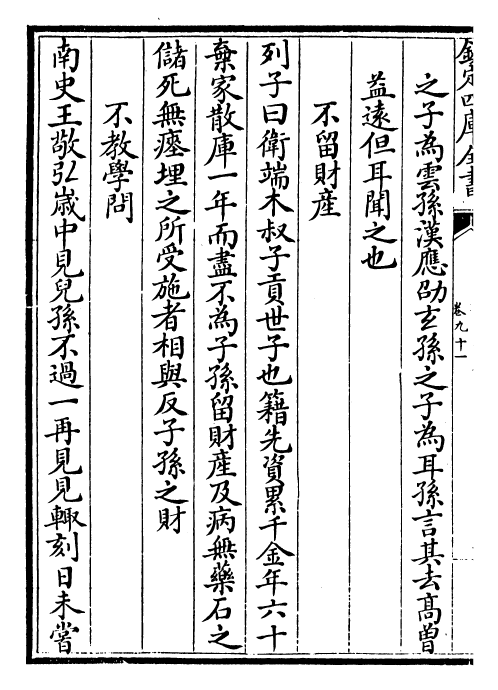 欽定四庫全書
卷九十一
之子為雲孫漢應劭玄孫之子為耳孫言其去髙曽
益遠但耳聞之也
不留財産
列子曰衛端木叔子貢世子也籍先資累千金年六十
棄家散庫一年而盡不為子孫留財産及病無藥石之
儲死無瘞埋之所受施者相與反子孫之財
不教學問
南史王敬弘嵗中見兒孫不過一再見見輙刻日未嘗